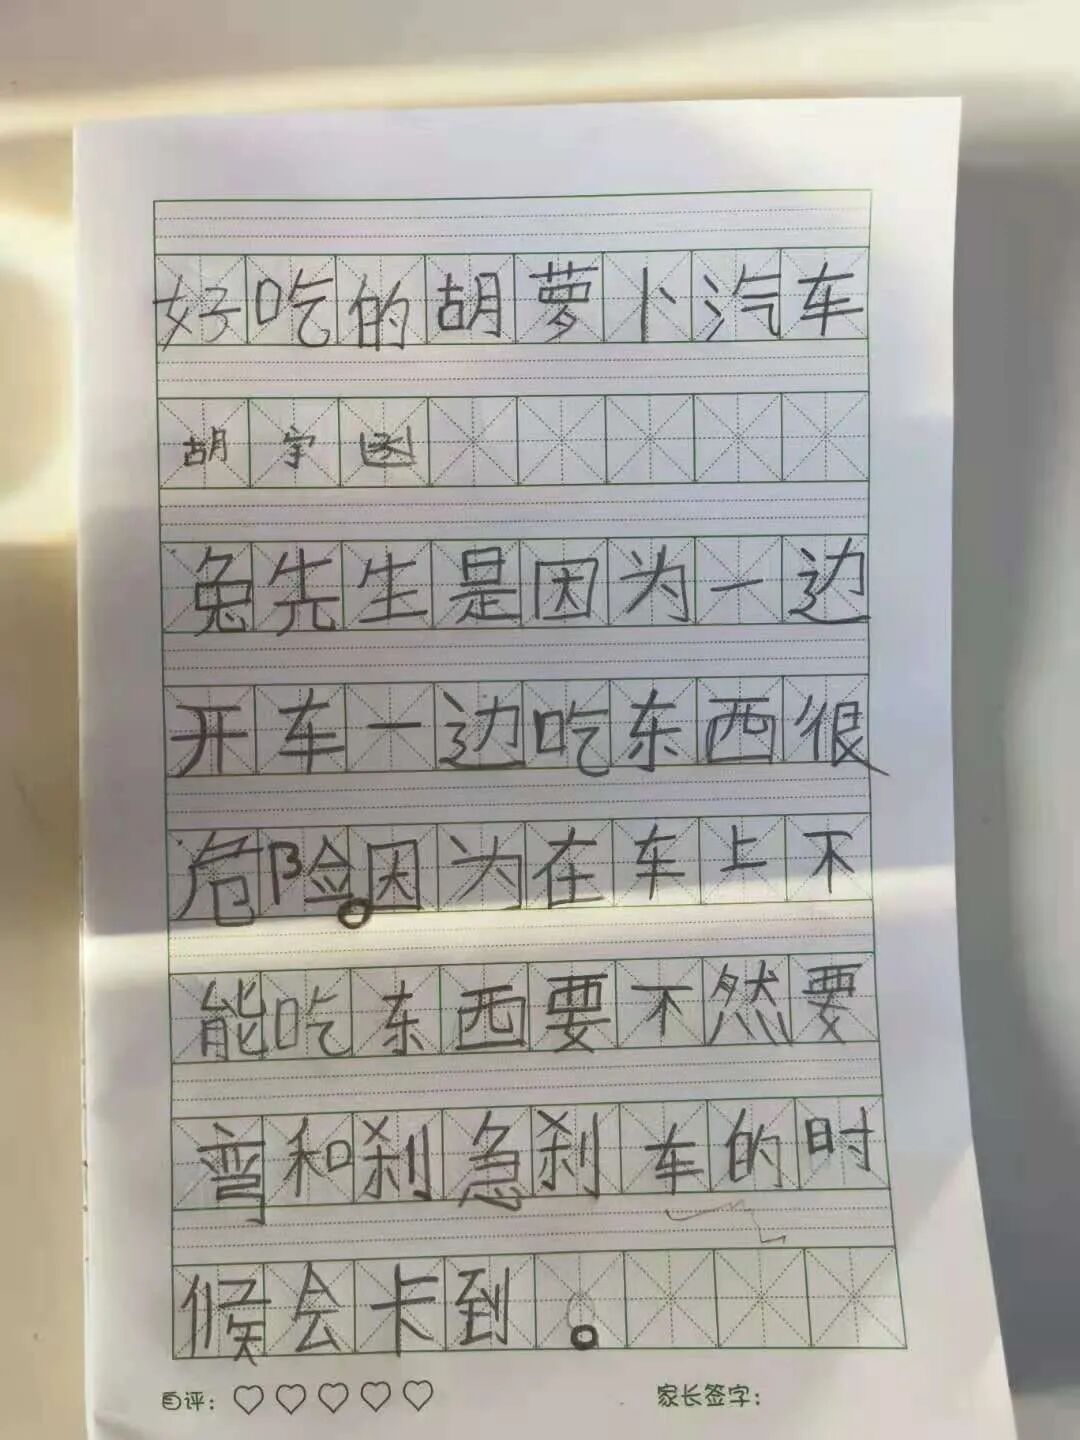 好吃的胡萝卜汽车
胡宇
兔先生是因为一边
开车一边吃东西很
危险。因为在车上不
能吃东西要不然要
弯和刹急刹车的时
候会卡到。
自评：♡♡♡♡♡
家长签字：